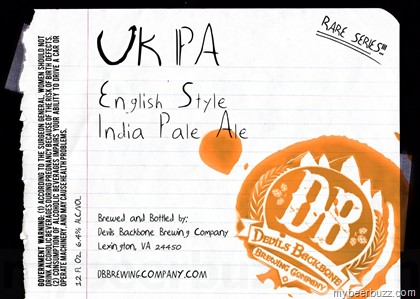 UK IPA
RARE SERIES!!!
English Style
India Pale Ale
GOVERNMENT WARNING: (1) ACCORDING TO THE SURGEON GENERAL, WOMEN SHOULD NOT
DRINK ALCOHOLIC BEVERAGES DURING PREGNANCY BECAUSE OF THE RISK OF BIRTH DEFECTS.
(2) CONSUMPTION OF ALCOHOLIC BEVERAGES IMPAIRS YOUR ABILITY TO DRIVE A CAR OR
OPERATE MACHINERY, AND MAY CAUSE HEALTH PROBLEMS.
12 FL OZ 6.4% ALC/VOL
Brewed and Bottled by:
Devils Backbone Brewing Company
Lexington, VA 24450
DBBREWINGCOMPANY.COM
DB
DEVILS BACKBONE
BREWING COMPANY
mybeerbuzz.com